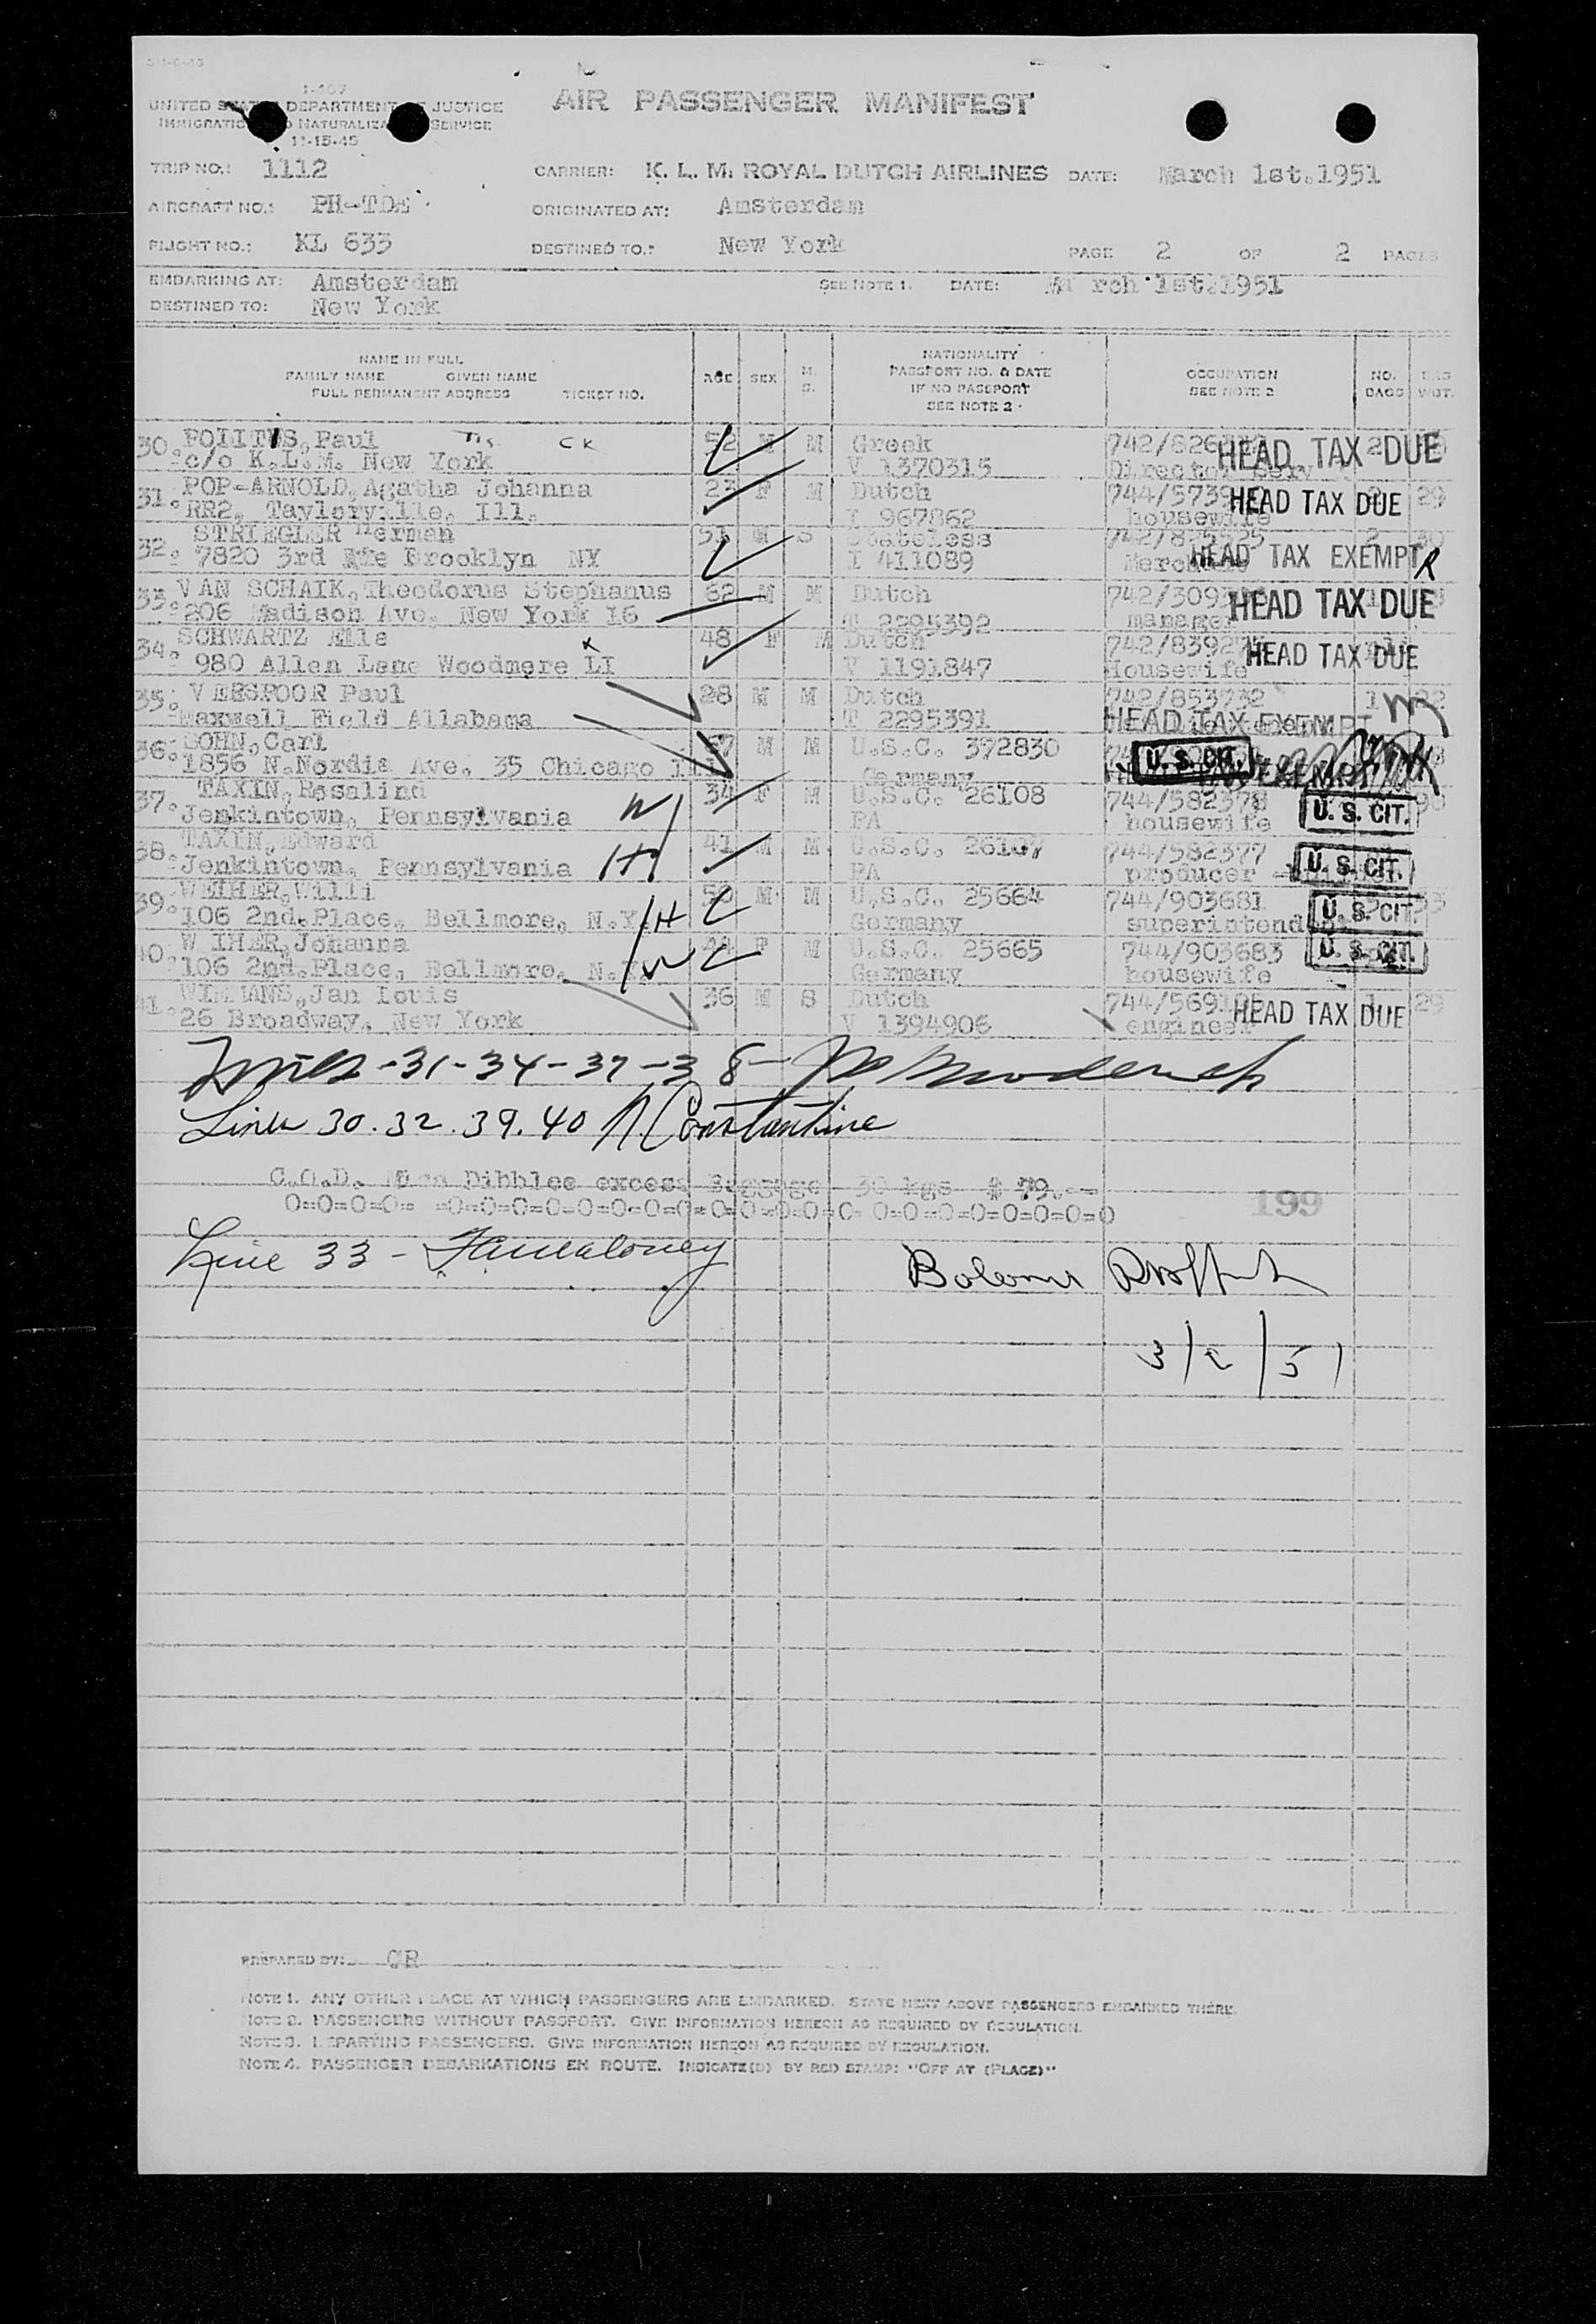 I-467
UNITED STATES DEPARTMENT OF JUSTICE
IMMIGRATION AND NATURALIZATION SERVICE
11-15-45
AIR PASSENGER MANIFEST
TRIP NO.: 1112 CARRIER: K. L. M. ROYAL DUTCH AIRLINES DATE: March 1st.1951
AIRCRAFT NO.: PH-TDE ORIGINATED AT: Amsterdam
FLIGHT NO.: KL 633 DESTINED TO.: New York PAGE 2 OF 2 PAGES
EMBARKING AT: Amsterdam SEE NOTE 1. DATE: March 1st.1951
DESTINED TO: New York
NAME IN FULL
FAMILY NAME GIVEN NAME
FULL PERMANENT ADDRESS TICKET NO.
AGE SEX M. S.
NATIONALITY
PASSPORT NO. & DATE
IF NO PASSPORT
SEE NOTE 2
OCCUPATION
SEE NOTE 2
NO. BAGS BAG WGT.
30. POLITUS, Paul CK 52 M M Greek 742/826 HEAD TAX DUE 2
c/o K.L.M. New York V 1370315 Director
31. POP-ARNOLD, Agatha Johanna 23 F M Dutch 744/5739 HEAD TAX DUE 29
RR2, Taylorville, Ill. T 967862 housewife
32. STRIEGLER Herman 51 M S Stateless 742/825525 2 30
7820 3rd Ave Brooklyn NY I 411089 HEAD TAX EXEMPT R
33. VAN SCHAIK, Theodorus Stephanus 62 M M Dutch 742/309 HEAD TAX DUE
206 Madison Ave. New York 16 T 2295392 manager
34. SCHWARTZ Elle 48 F M Dutch 742/8392 HEAD TAX DUE
980 Allen Lane Woodmere LI V 1191847 Housewife
35. VERSPOOR Paul 28 M M Dutch 742/853732 1 22
Maxwell Field Allabama T 2295391 HEAD TAX EXEMPT
36. SOHN, Carl 57 M M U.S.C. 372830 U.S. CIT.
1856 N.Nordia Ave. 35 Chicago Ill Germany
37. TAXIN, Rosalind W 34 F M U.S.C. 26108 744/582378 U. S. CIT. 90
Jenkintown, Pennsylvania PA housewife
38. TAXIN, Edward H 41 M M U.S.C. 26107 744/582377 U. S. CIT.
Jenkintown, Pennsylvania PA producer
39. WEIHER, Willi 50 M M U.S.C. 25664 744/903681 U. S. CIT.
106 2nd.Place, Bellmore, N.Y. H Germany superintendent
40. WEIHER, Johanna F M U.S.C. 25665 744/903683 U. S. CIT.
106 2nd.Place, Bellmore, N.Y. W Germany housewife
41. Jan Louis 36 M S Dutch 744/569 HEAD TAX DUE 29
26 Broadway, New York V 1394906 engineer
Lines -31-34-37-38-
Lines 30.32.39.40 N Constantine
C.O.D. Miss Dibblee excess Baggage 30 kgs $ 79.--
199
Line 33 -
3/2/51
PREPARED BY: GR
NOTE 1. ANY OTHER PLACE AT WHICH PASSENGERS ARE EMBARKED. STATE NEXT ABOVE PASSENGERS EMBARKED THERE.
NOTE 2. PASSENGERS WITHOUT PASSPORT. GIVE INFORMATION HEREON AS REQUIRED BY REGULATION.
NOTE 3. DEPARTING PASSENGERS. GIVE INFORMATION HEREON AS REQUIRED BY REGULATION.
NOTE 4. PASSENGER DEBARKATIONS EN ROUTE. INDICATE(D) BY RED STAMP: "OFF AT (PLACE)"